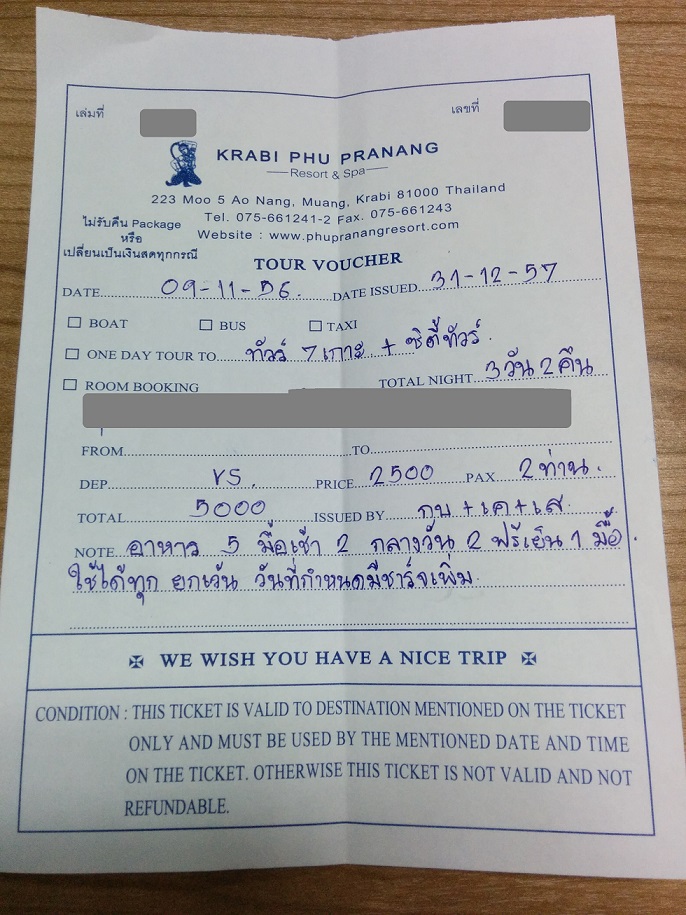 เล่มที่ เลขที่
KRABI PHU PRANANG
Resort & Spa
223 Moo 5 Ao Nang, Muang, Krabi 81000 Thailand
Tel. 075-661241-2 Fax. 075-661243
Website : www.phupranangresort.com
ไม่รับคืน Package
หรือ
เปลี่ยนเป็นเงินสดทุกกรณี
TOUR VOUCHER
DATE 09-11-56. DATE ISSUED 31-12-57
BOAT BUS TAXI
ONE DAY TOUR TO ทัวร์ 7 เกาะ + ซิตี้ทัวร์.
ROOM BOOKING TOTAL NIGHT 3 วัน 2 คืน
FROM TO
DEP. VS. PRICE 2500 PAX 2 ท่าน.
TOTAL 5000 ISSUED BY กบ + เค + เส
NOTE อาหาร 5 มื้อเช้า 2 กลางวัน 2 ฟรีเย็น 1 มื้อ.
ใช้ได้ทุก ยกเว้น วันที่กำหนดมีชาร์จเพิ่ม.
WE WISH YOU HAVE A NICE TRIP
CONDITION : THIS TICKET IS VALID TO DESTINATION MENTIONED ON THE TICKET
ONLY AND MUST BE USED BY THE MENTIONED DATE AND TIME
ON THE TICKET. OTHERWISE THIS TICKET IS NOT VALID AND NOT
REFUNDABLE.